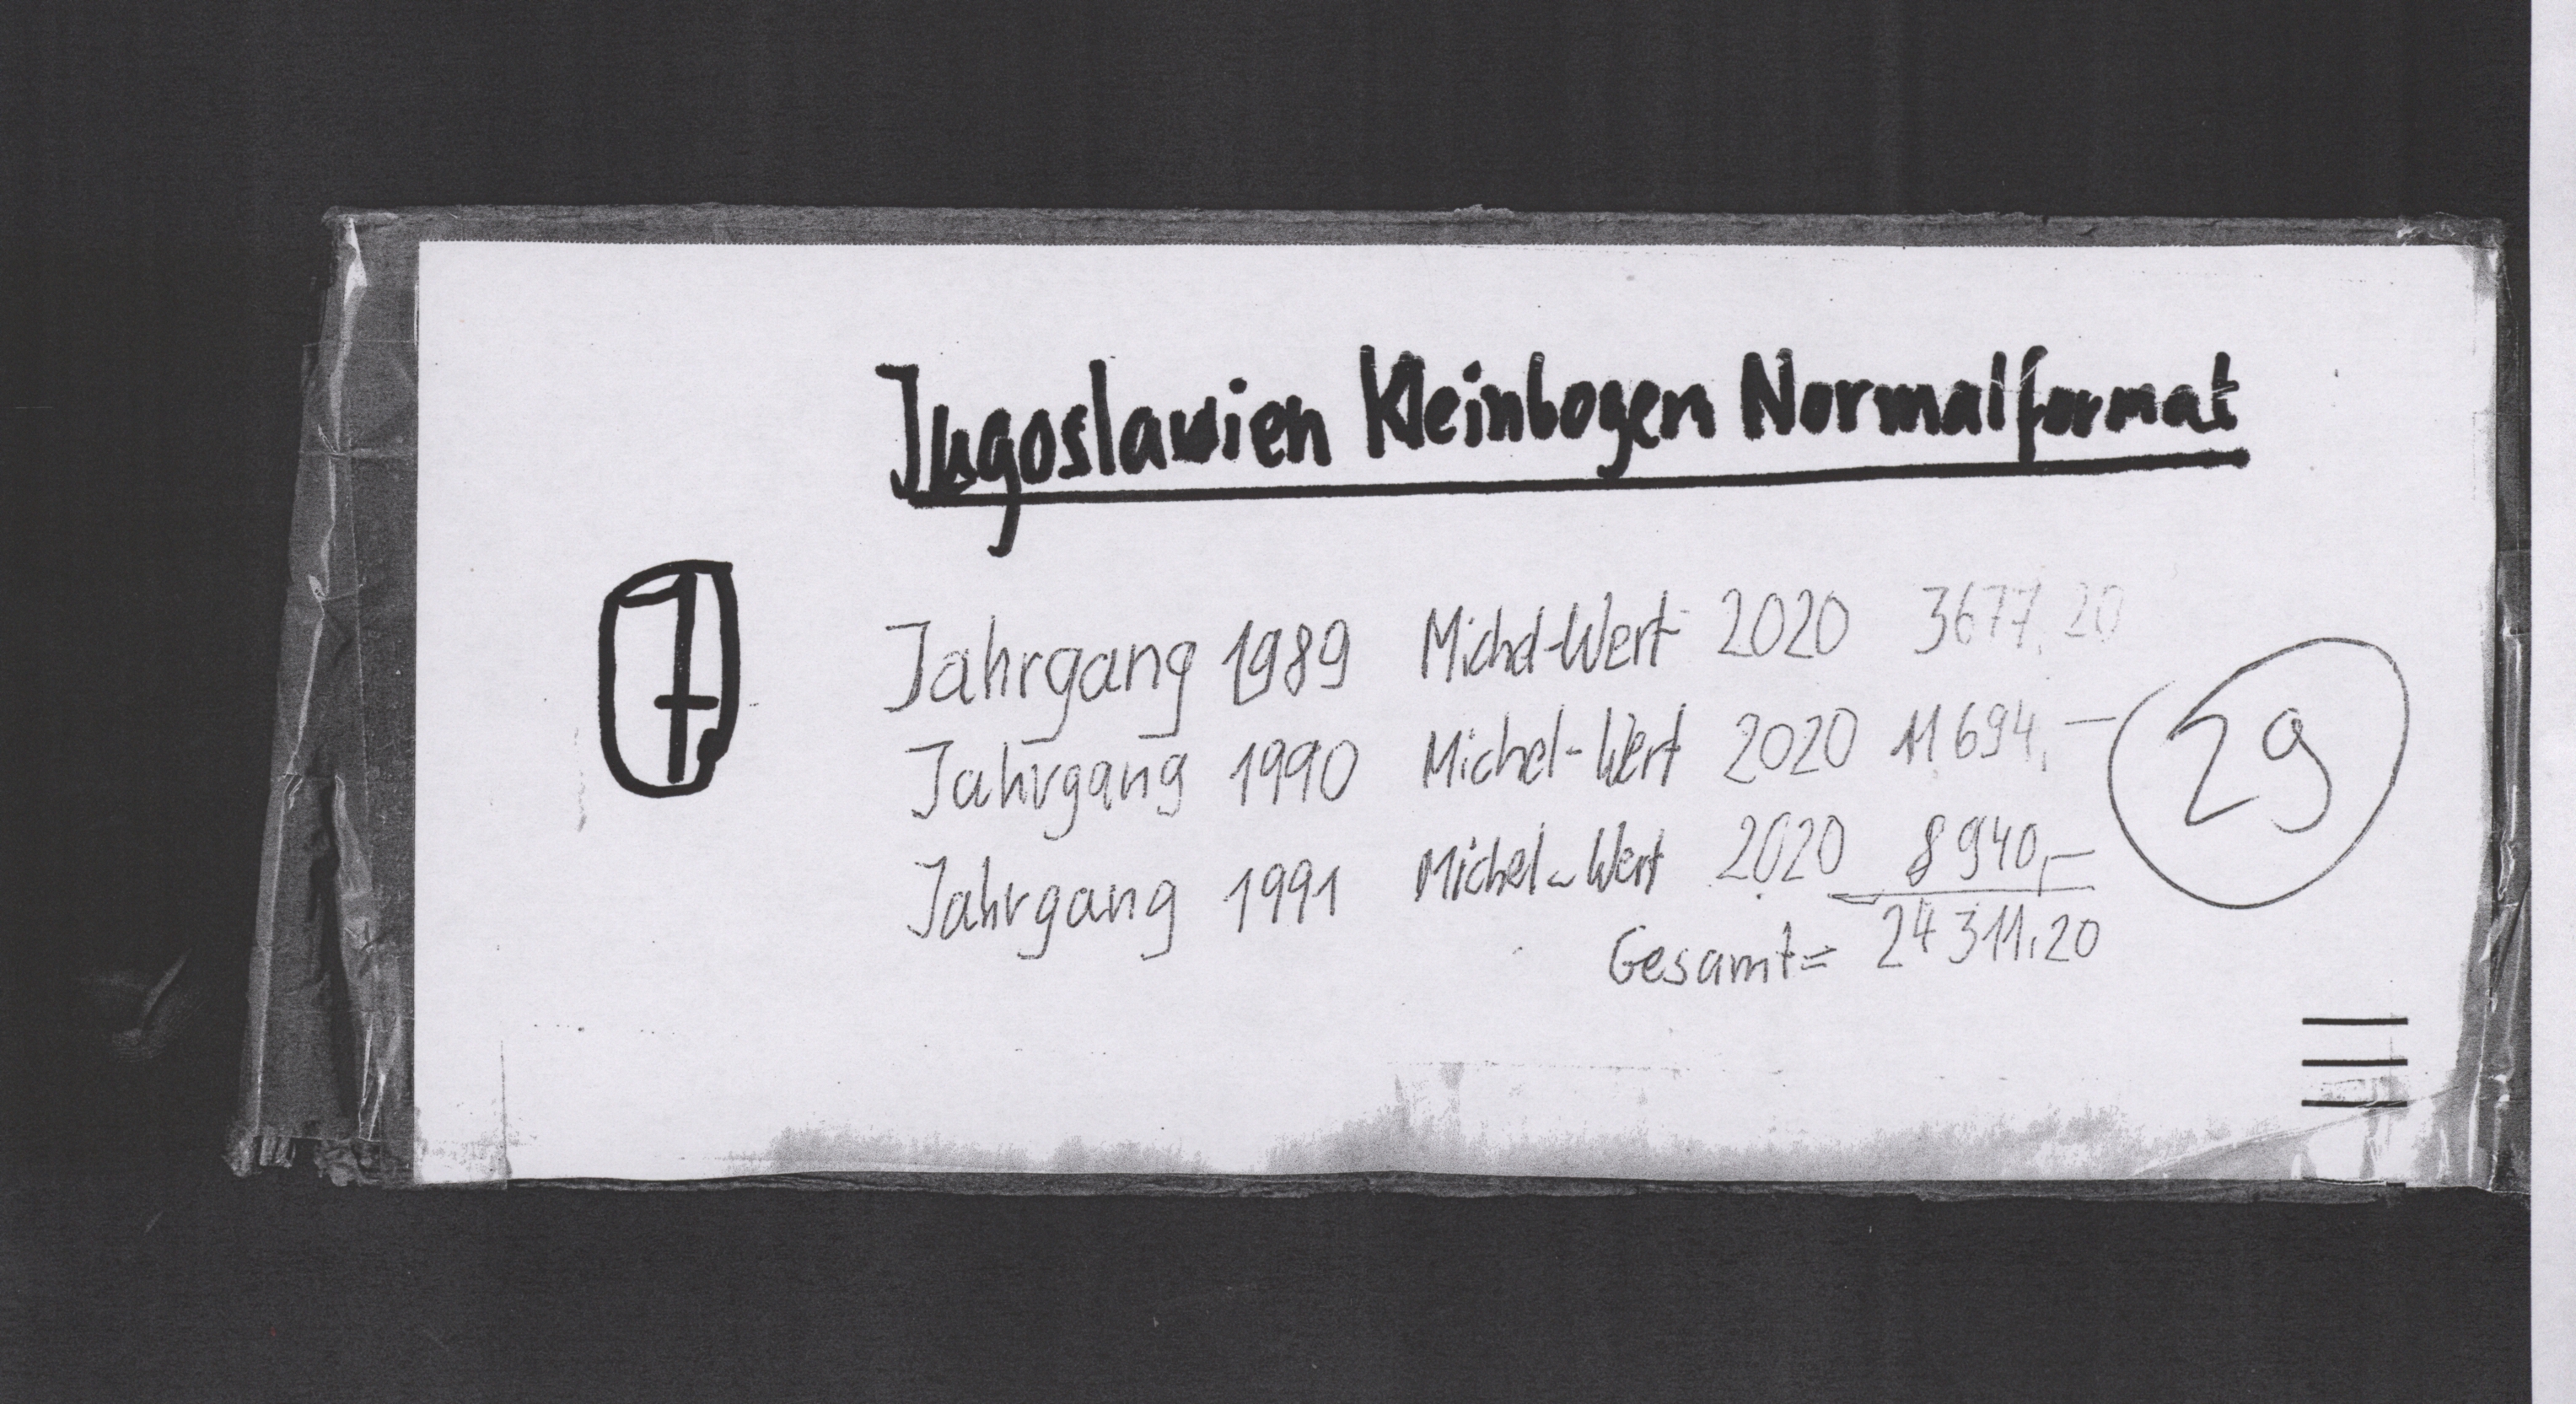 Jugoslawien Kleinbogen Normalformat
7
Jahrgang 1989 Michel-Wert 2020 3677,20
Jahrgang 1990 Michel-Wert 2020 11 694,—
29
Jahrgang 1991 Michel-Wert 2020 8 940,—
Gesamt= 24 311,20